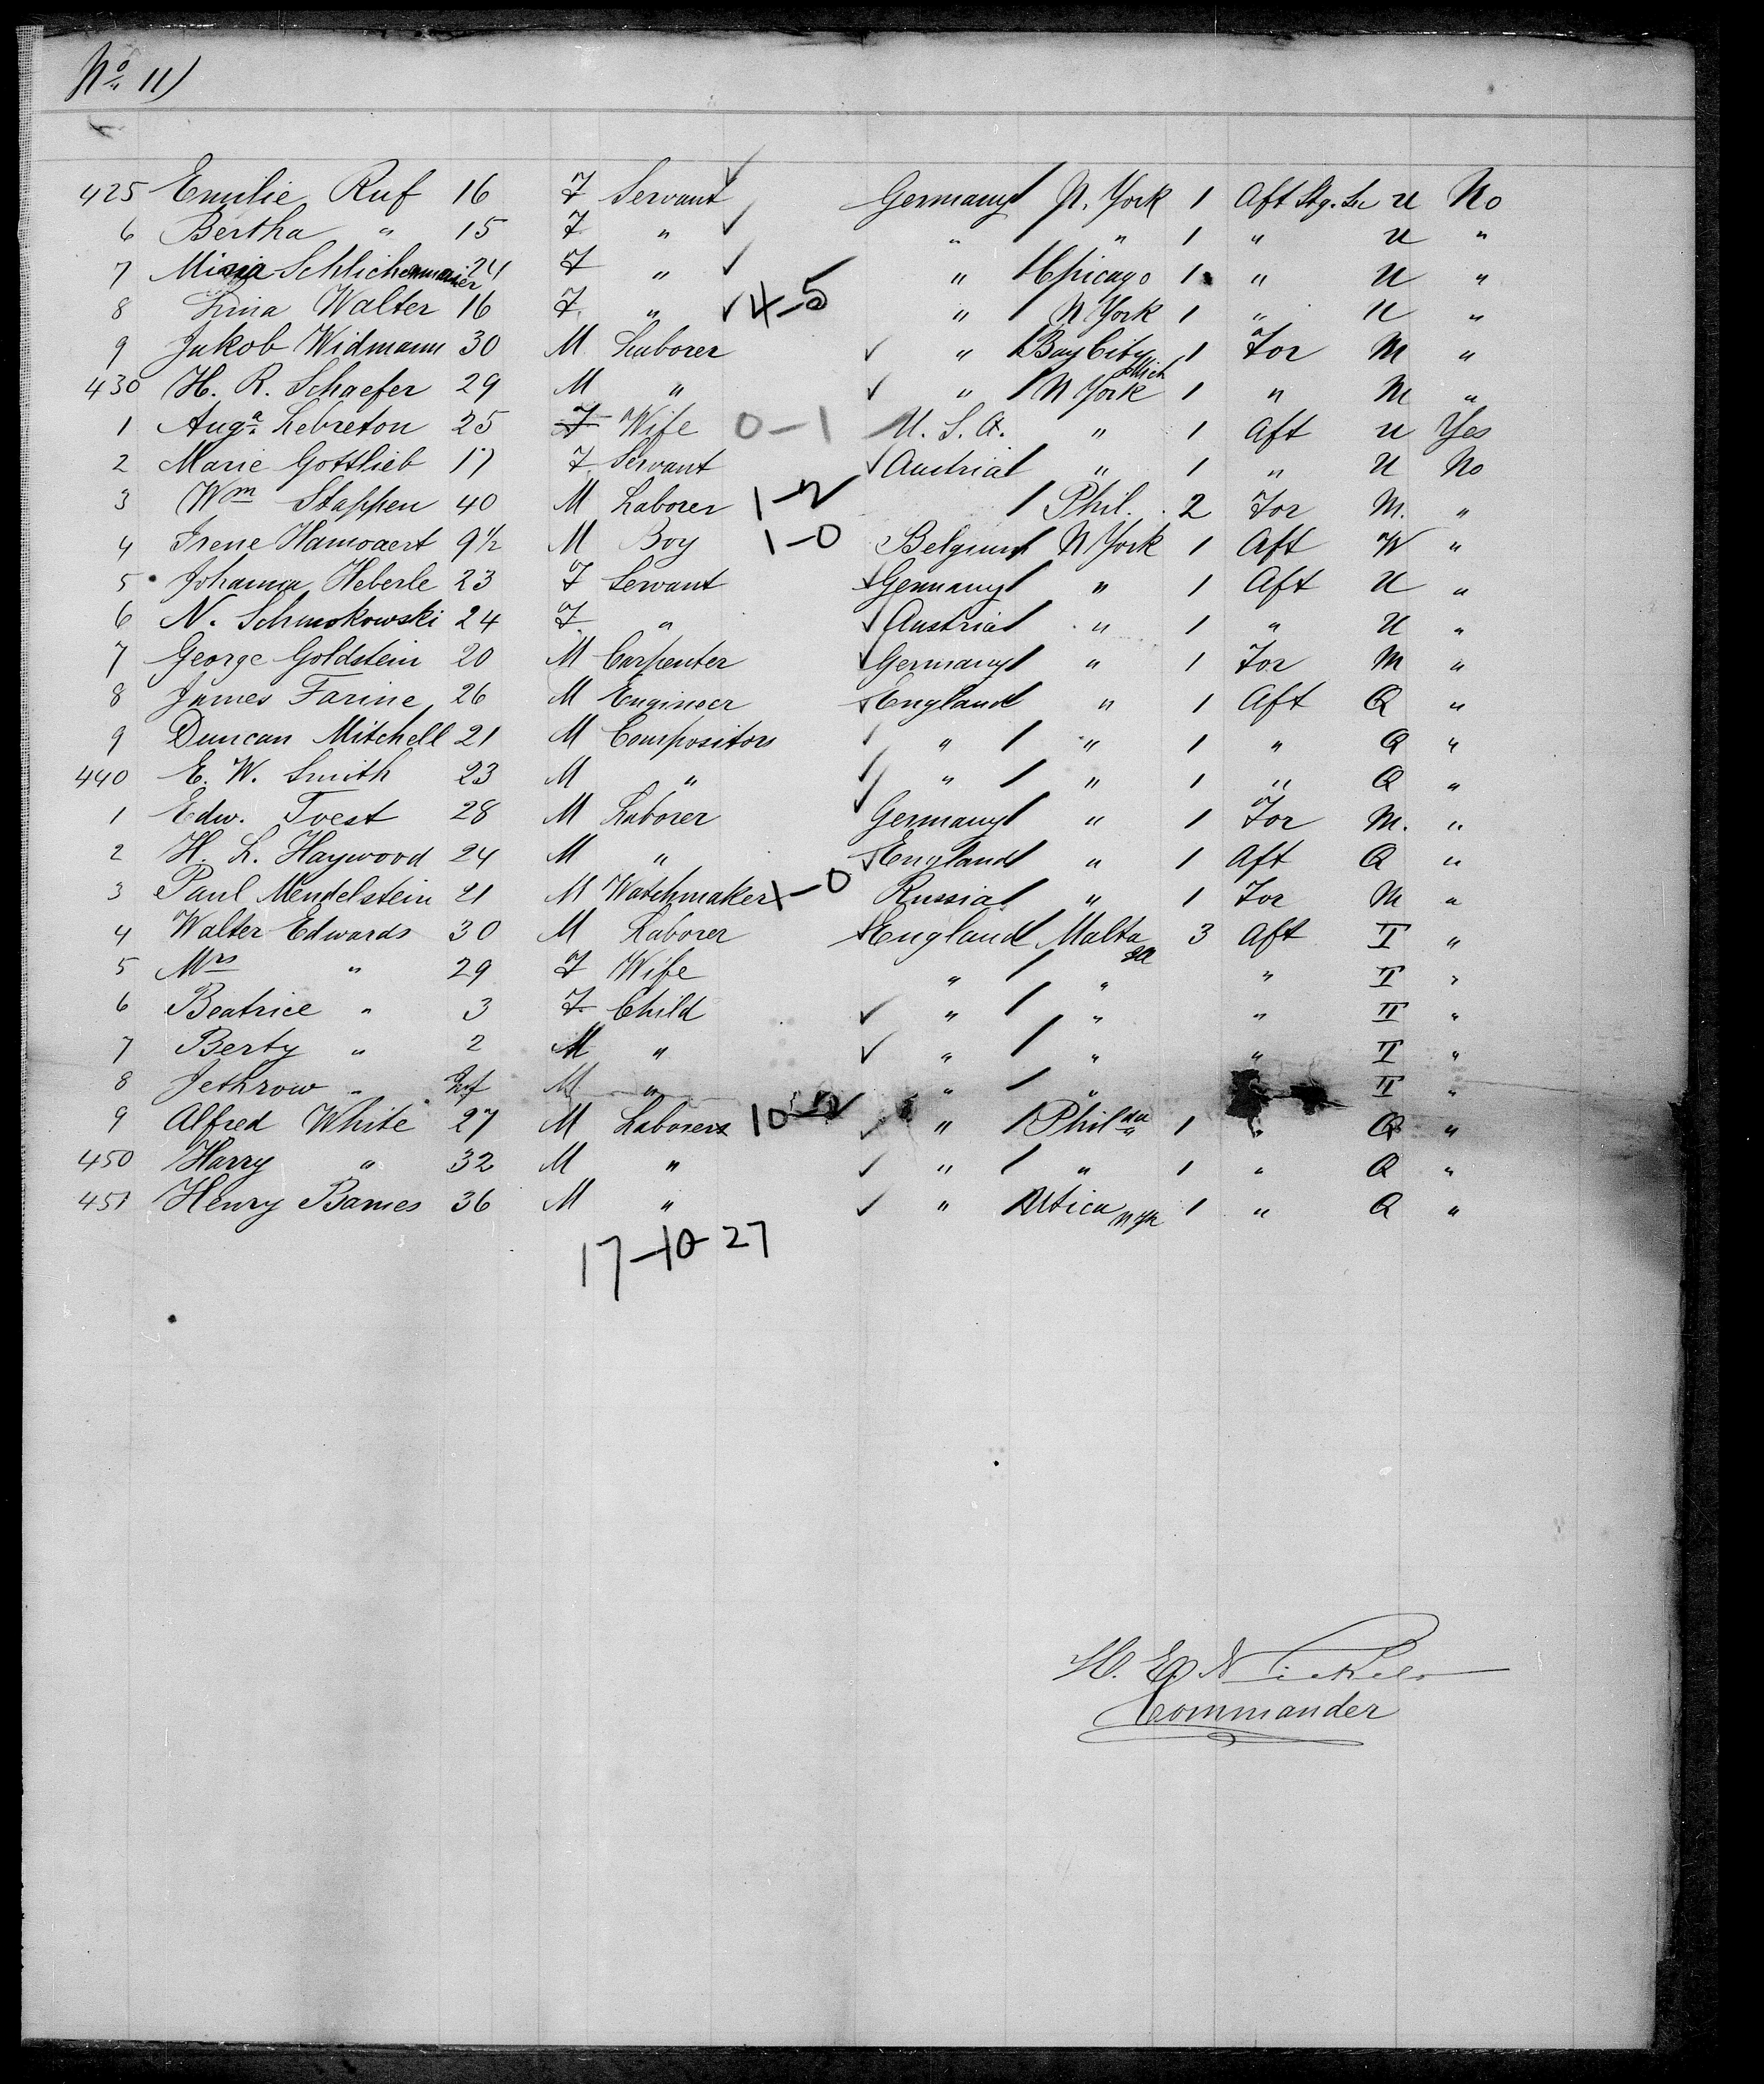 No. 11)
425 Emilie Ruf 16 F Servant Germany N. York 1 Aft Stg. U No
6 Bertha " 15 F " " " 1 " U "
7 Schlichermaier 24 F " " Chicago 1 " U "
8 Lina Walter 16 F. " 4-5 " N York 1 " U "
9 Jakob Widmann 30 M Laborer " Bay City Mich 1 For M "
430 H. R. Schaefer 29 M " " N York 1 " M "
1 Auga. Lebreton 25 F Wife 0-1 U. S. A. " 1 Aft U Yes
2 Marie Gottlieb 17 F Servant Austria " 1 " U No
3 Wm Stappen 40 M Laborer 1-2 Phil. 2 For M. "
4 Irene Hamoaert 9½ M Boy 1-0 Belgium N York 1 Aft W "
5 Johanna Heberle 23 F Servant Germany " 1 Aft U "
6 N. Schmokowski 24 F " Austria " 1 " U "
7 George Goldstein 20 M Carpenter Germany " 1 For M "
8 James Farine 26 M Engineer England " 1 Aft Q "
9 Duncan Mitchell 21 M Compositors " " 1 " Q "
440 E. W. Smith 23 M " " " 1 " Q "
1 Edw. Toest 28 M Laborer Germany " 1 For M. "
2 H. L. Haywood 24 M " England " 1 Aft Q "
3 Paul Mendelstein 21 M Watchmaker 1-0 Russia " 1 For M "
4 Walter Edwards 30 M Laborer England Malta 3 Aft II "
5 Mrs " 29 F Wife " " " II "
6 Beatrice " 3 F. Child " " " II "
7 Berty " 2 M " " " " II "
8 Jethrow " Inf M " " " II "
9 Alfred White 27 M Laborers 10-2 " Philda 1 " Q "
450 Harry " 32 M " " " 1 " Q "
451 Henry Barnes 36 M " " Utica 1 " Q "
17-10-27
Commander